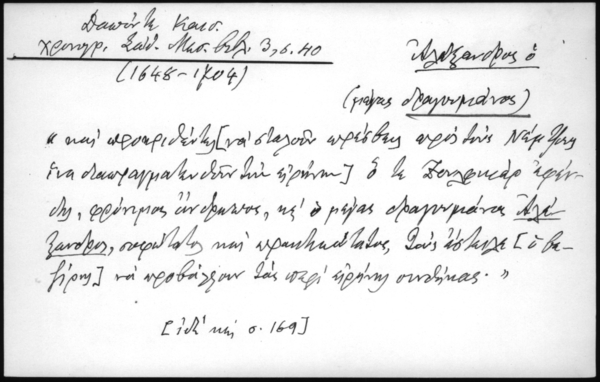 Δαπόντε Καισ.
χρονογρ. Σάθ. Μεσ. βιβλ. 3, σ. 40
(1648-1704)
Ἀλέξανδρος ὁ
(μέγας δραγουμάνος)
« καὶ προκριθέντες [νὰ σταλοῦν πρέσβεις πρὸς τοὺς Νέμτζους
ἵνα διαπραγματευθοῦν τὴν εἰρήνην] ὅ τε Ζουλφικὰρ ἐφέν-
δης, φρόνιμος ἄνθρωπος, κι' ὁ μέγας δραγουμάνος Ἀλέ-
ξανδρος, σοφώτατος καὶ πρακτικώτατος, τοὺς ἔστειλε [ὁ βε-
ζίρης] νὰ προβάλουν τὰς περὶ εἰρήνης συνθήκας. »
[ἰδὲ καὶ σ. 169]